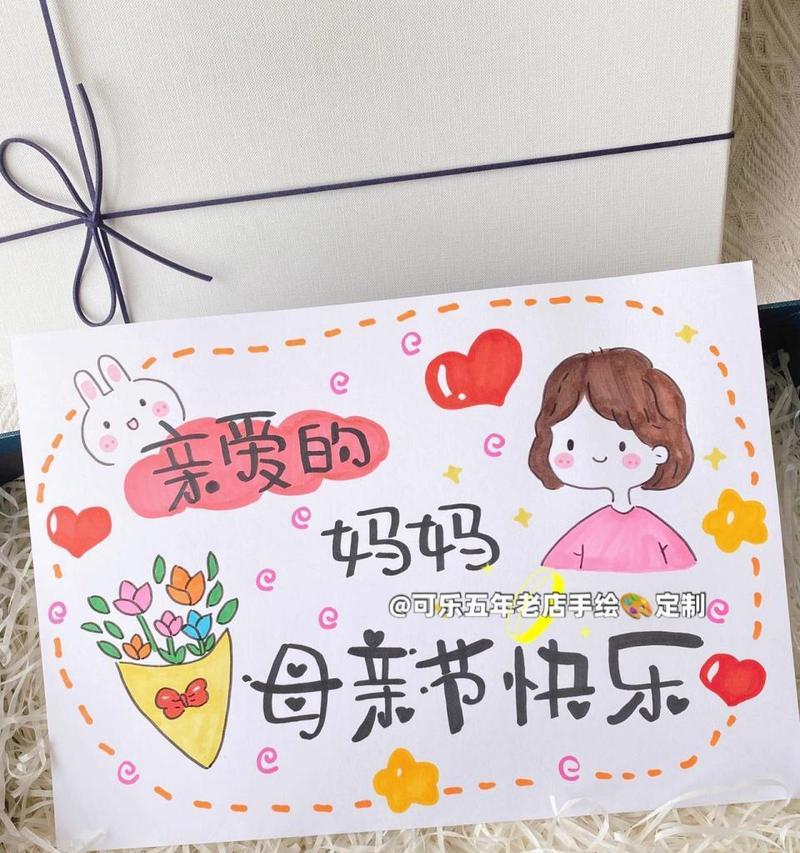 亲爱的
妈妈
@可乐五年老店手绘🎨定制
母亲节快乐